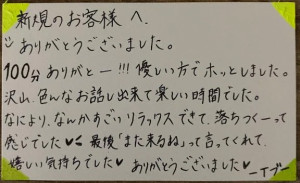 新規のお客様へ.
ありがとうございました。
100分ありがとー!!! 優しい方でホッとしました。
沢山、色んなお話し出来て楽しい時間でした。
なにより、なんかすごいリラックスできて、落ちつくーって
感じでした♥ 最後「また来るね」って言ってくれて、
嬉しい気持ちでした♥ ありがとうございました♥